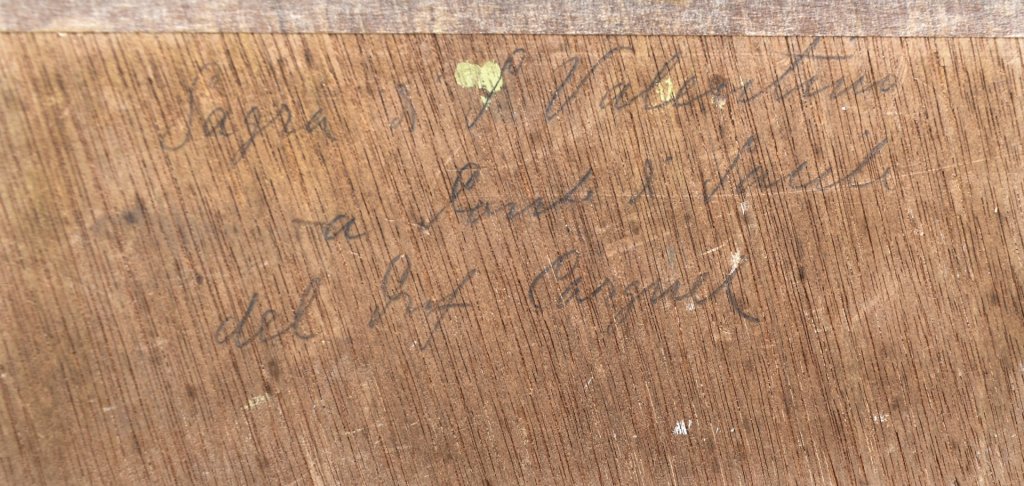 Sagra di S Valentino
a Ponte di Sacile
del Prof Cargnel